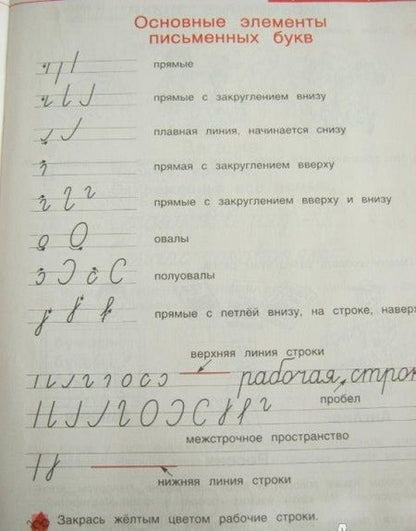 Основные элементы
письменных букв
прямые
прямые с закруглением внизу
плавная линия, начинается снизу
прямая с закруглением вверху
прямые с закруглением вверху и внизу
овалы
полуовалы
прямые с петлёй внизу, на строке,
верхняя линия строки
рабочая
пробел
межстрочное пространство
нижняя линия строки
Закрась жёлтым цветом рабочие строки.